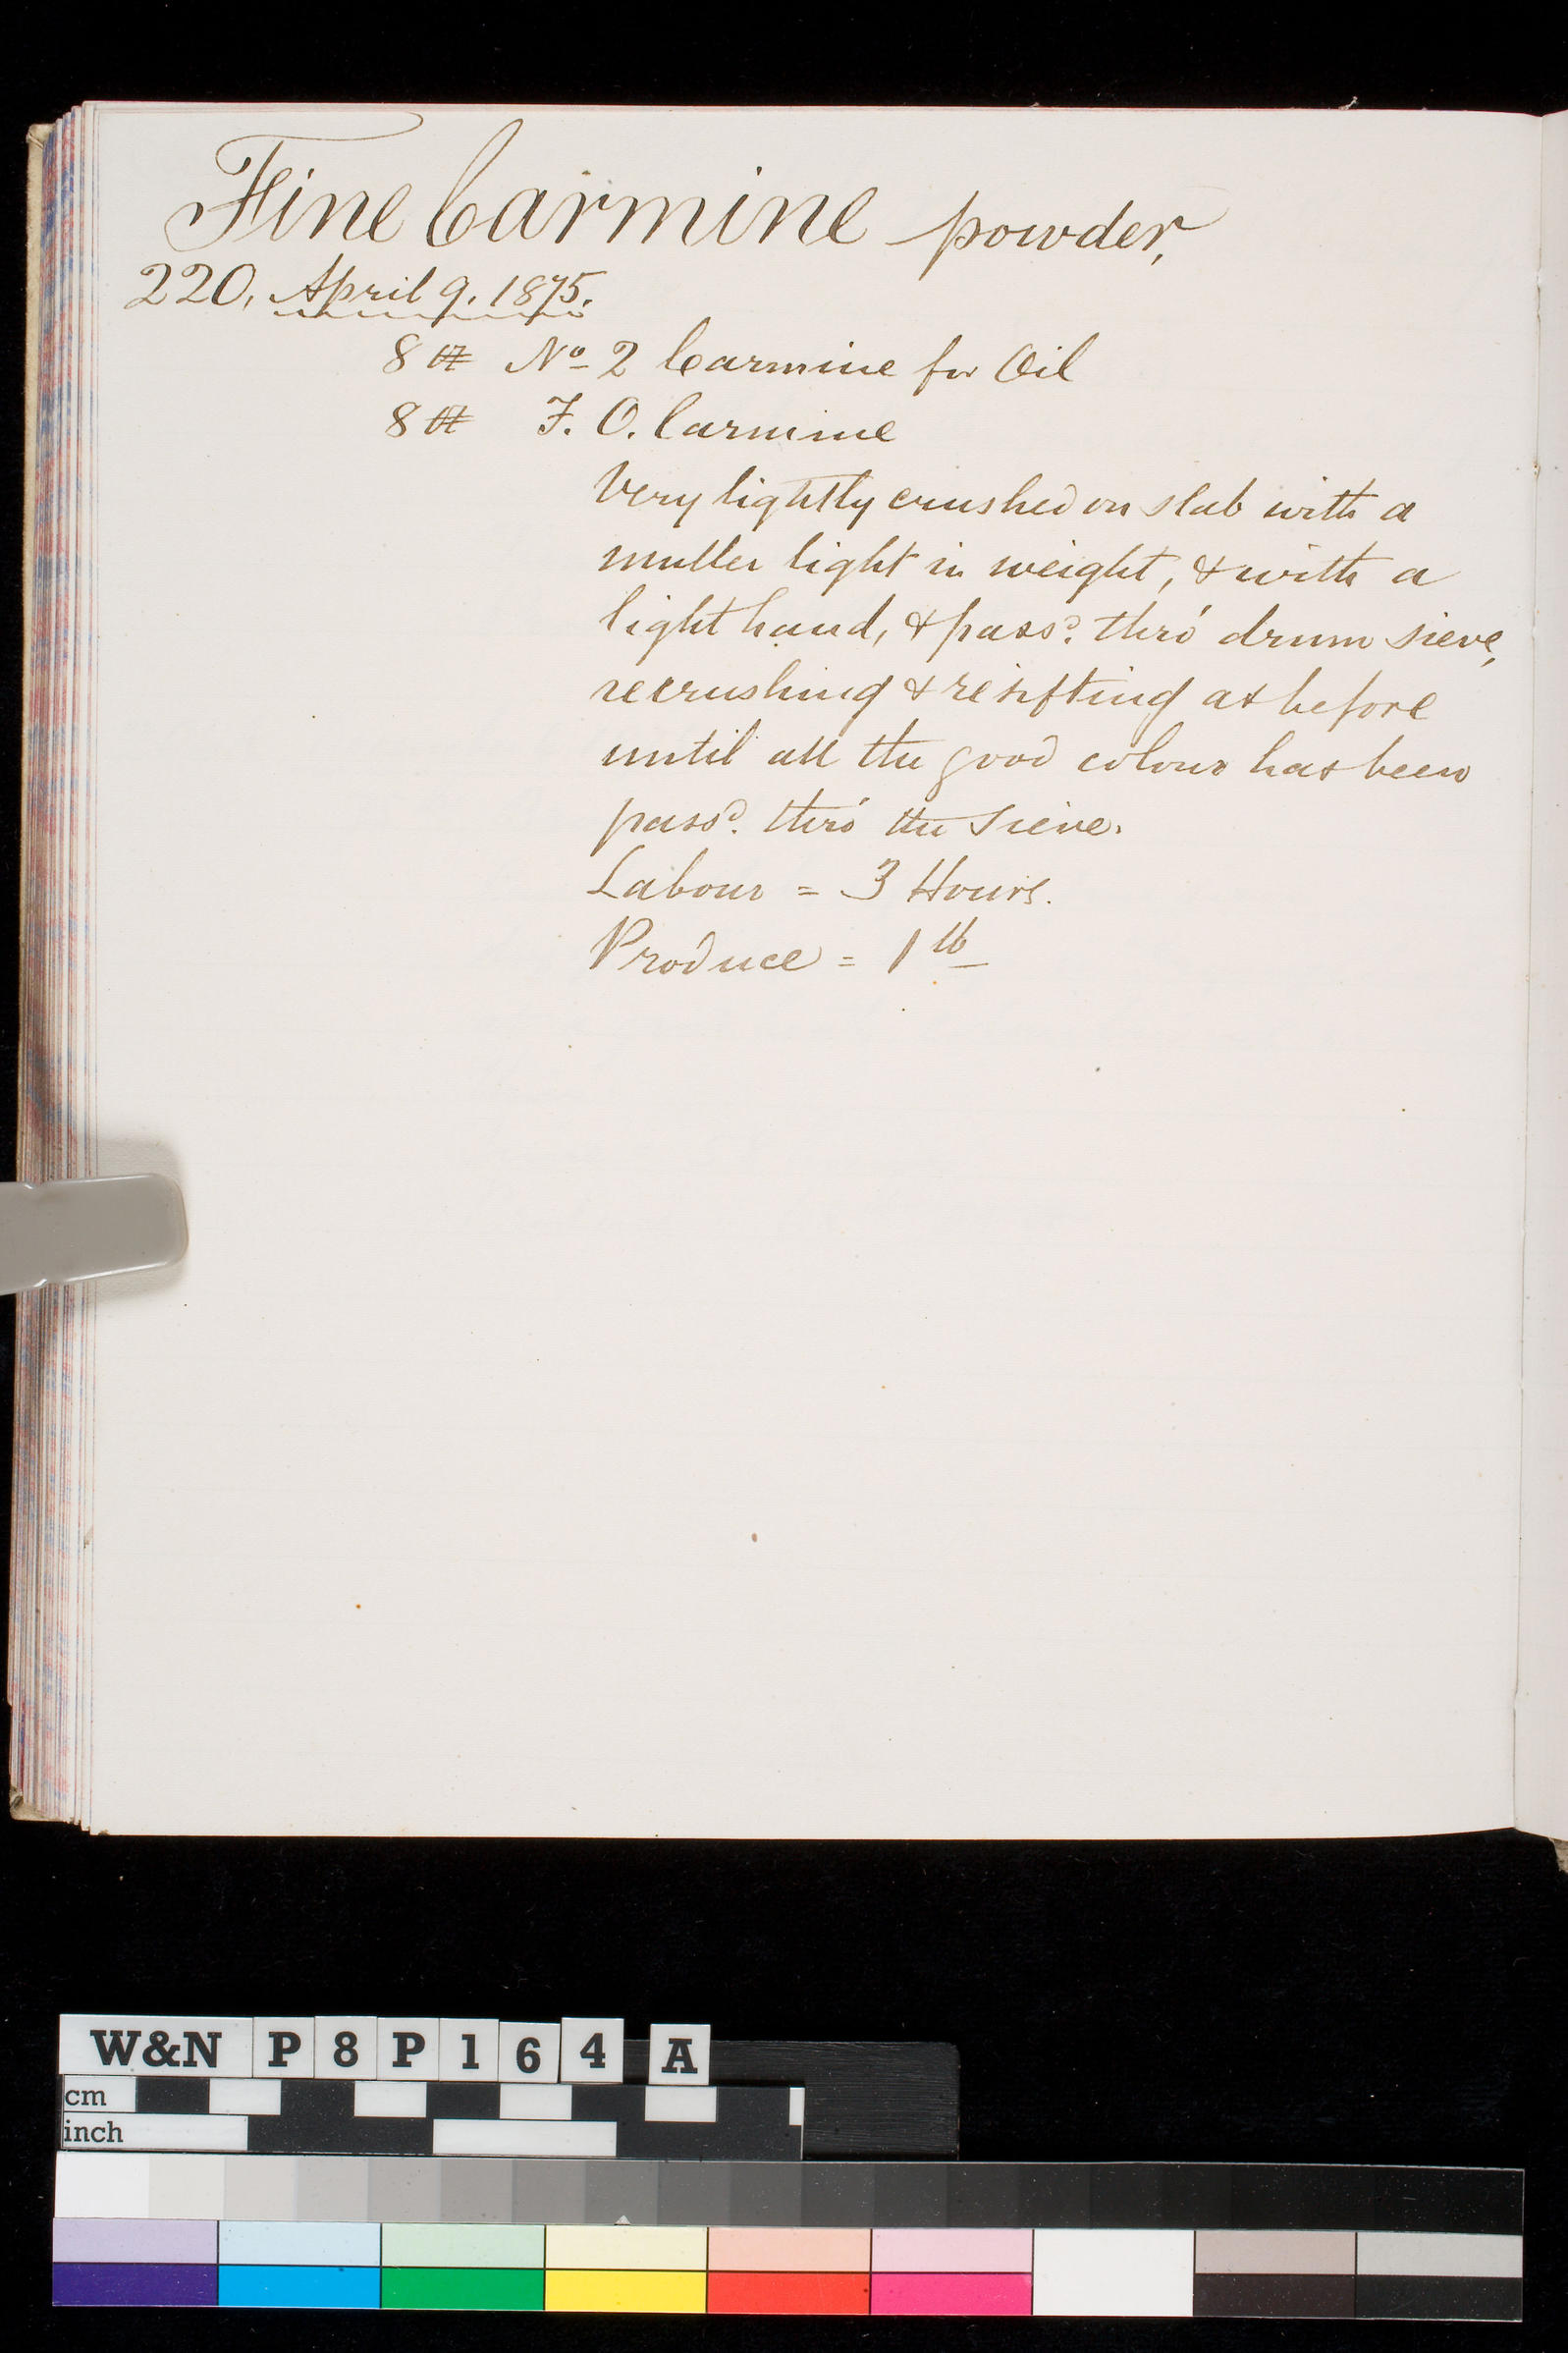 Fine Carmine powder,
220, April 9. 1875.
8 No 2 Carmine for Oil
8 F. O. Carmine
Very lightly crushed on slab with a
muller light in weight, & with a
light hand, & passd. thro' drum sieve,
recrushing & resifting as before
until all the good colour has been
passd. thro' the Sieve.
Labour = 3 Hours.
Produce = 1 lb
W&N P8P164 A
cm
inch